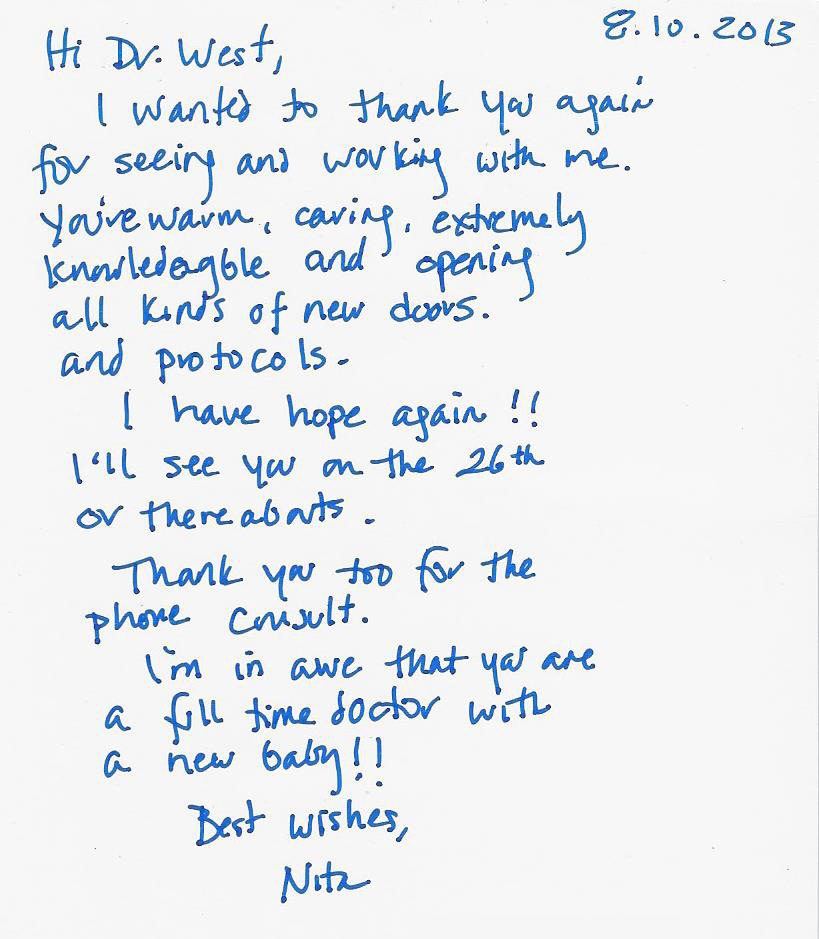 8.10.2013
Hi Dr. West,
I wanted to thank you again
for seeing and working with me.
You're warm, caring, extremely
knowledeagble and opening
all kinds of new doors.
and protocols.
I have hope again !!
I'll see you on the 26th
or thereabouts.
Thank you too for the
phone consult.
I'm in awe that you are
a full time doctor with
a new baby!!
Best wishes,
Nita